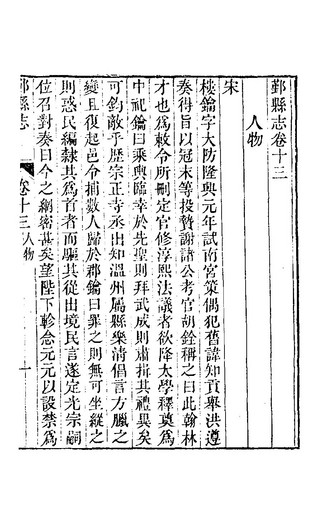 鄞縣志卷十三
人物
宋
樓鑰字大防隆興元年試南宮策偶犯舊諱知貢舉洪遵
奏得旨以冠末等投贄謝諸公考官胡銓稱之曰此翰林
才也爲敕令所刪定官修淳熙法議者欲降太學釋奠爲
中祀鑰曰乘輿臨幸於先聖則拜武成則肅揖其禮異矣
可鈞敵乎歷宗正寺丞出知溫州屬縣樂清倡言方臘之
變且復起邑令捕數人歸於郡鑰曰罪之則無可坐縱之
則惑民編隸其爲首者而驅其從出境民言遂定光宗嗣
位召對奏曰今之綱密甚矣望陛下軫念元元以設禁爲
鄞縣志
卷十三人物
一